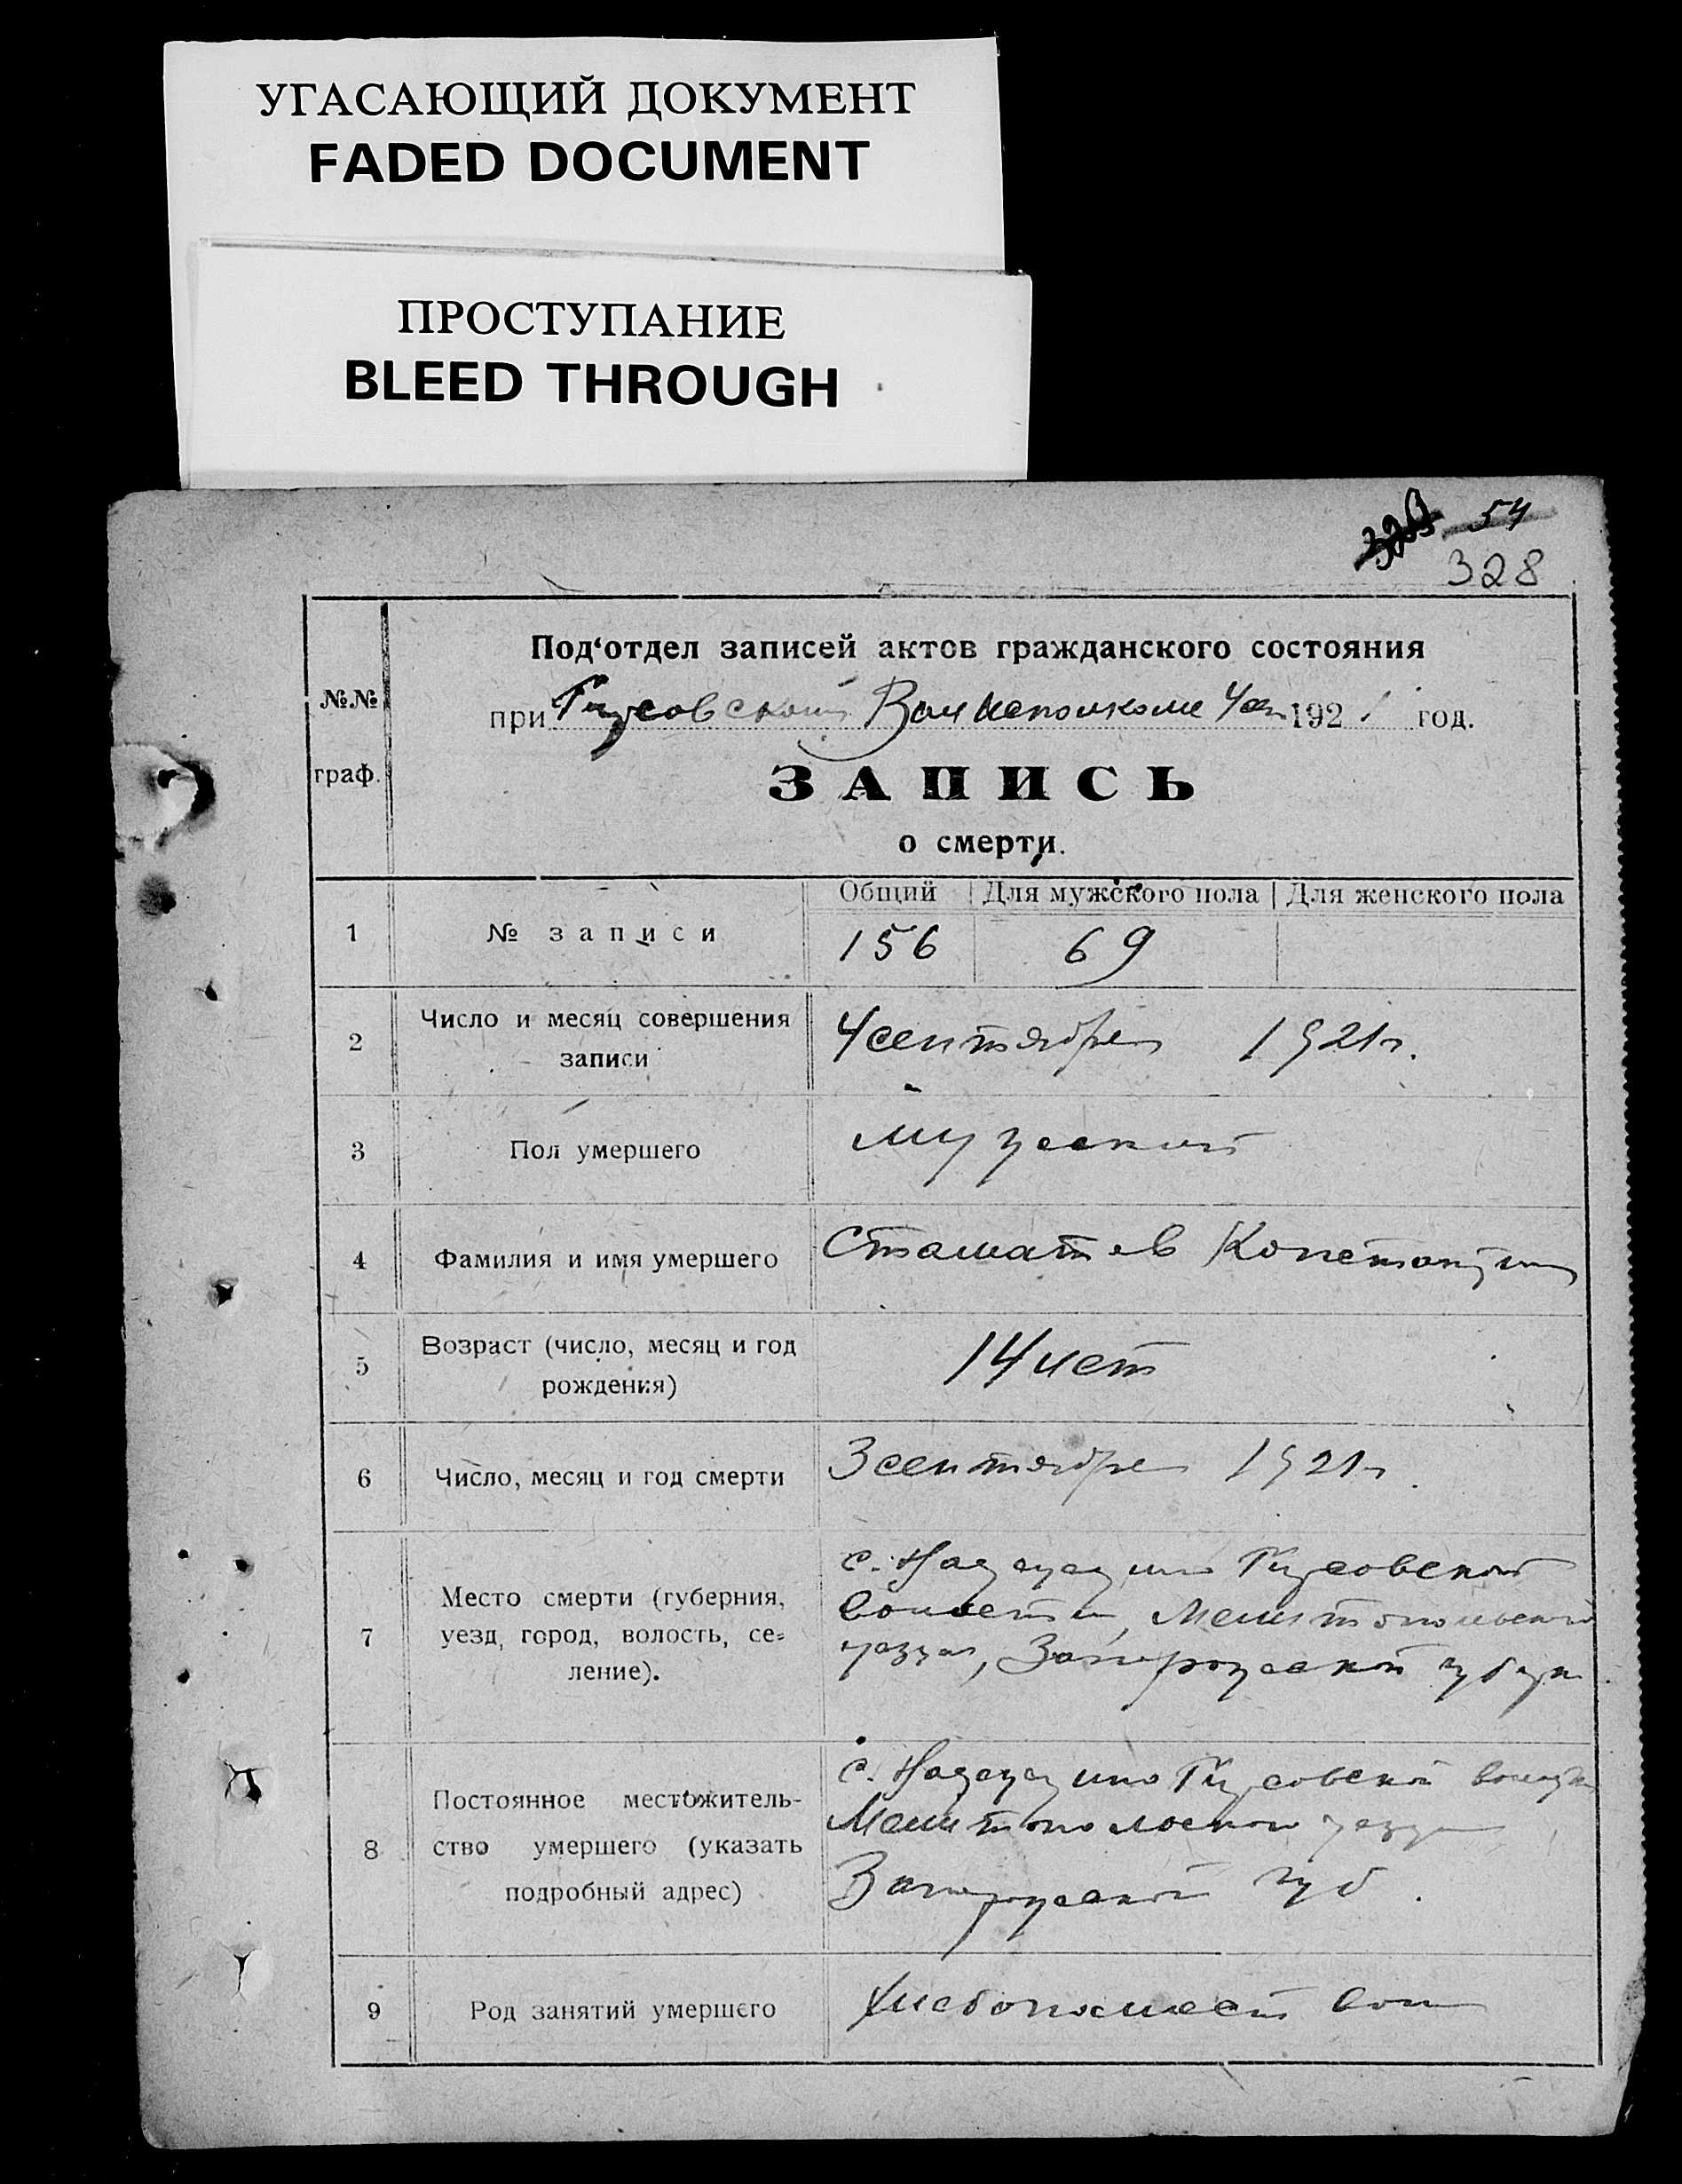 УГАСАЮЩИЙ ДОКУМЕНТ
FADED DOCUMENT
ПРОСТУПАНИЕ
BLEED THROUGH
54
328
№№ граф.
Под‘отдел записей актов гражданского состояния
при Волисполкоме 4 сен 1921 год.
ЗАПИСЬ
о смерти.
Общий Для мужского пола Для женского пола
1 № записи 156 69
2 Число и месяц совершения записи 4 сентября 1921 г.
3 Пол умершего мужской
4 Фамилия и имя умершего Стаматов Константин
5 Возраст (число, месяц и год рождения) 14 лет
6 Число, месяц и год смерти 3 сентября 1921 г
7 Место смерти (губерния, уезд, город, волость, се=ление).
с.
волости, Мелитопольского
уезда, Запорожской
8 Постоянное местожитель-ство умершего (указать подробный адрес)
с.
Мелитопольского уезда
Запорожской губ.
9 Род занятий умершего